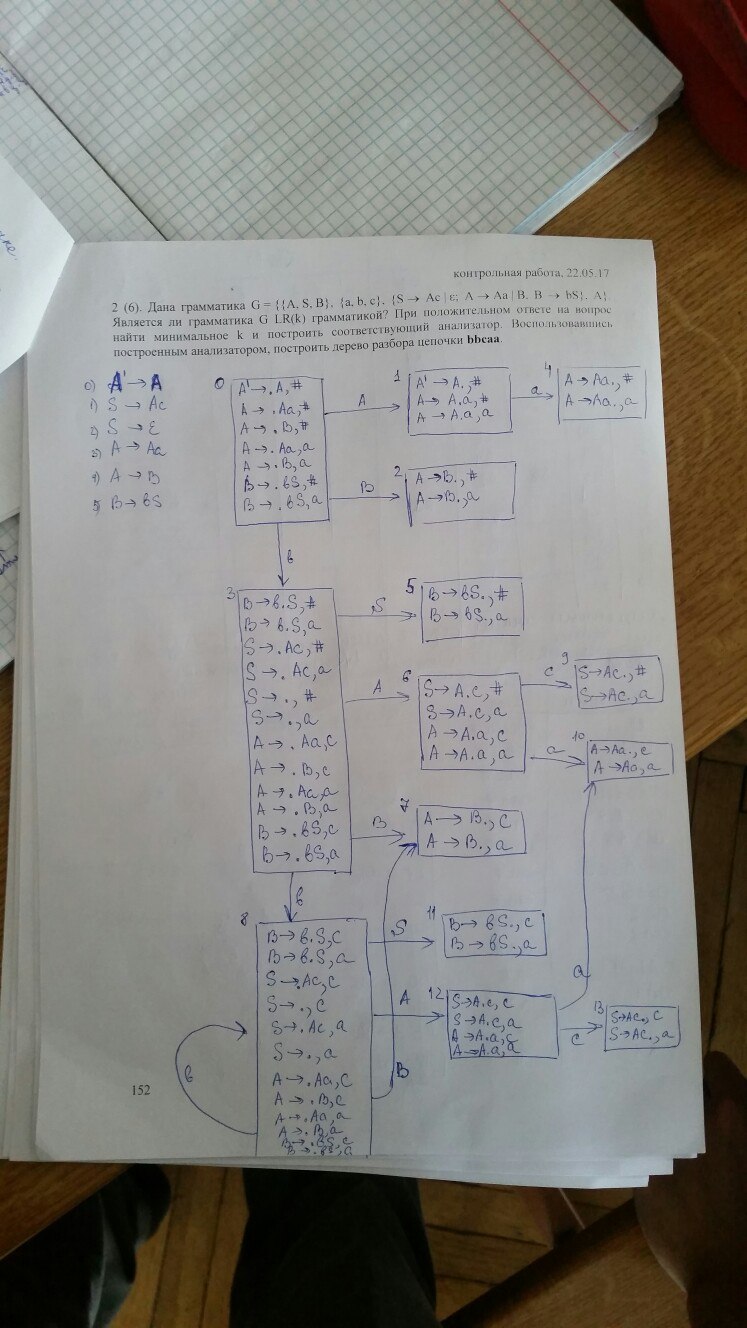 контрольная работа, 22.05.17
2 (6). Дана грамматика G = {{A, S, B}, {a, b, c}, {S → Ac | ε; A → Aa | B, B → bS}, A}.
Является ли грамматика G LR(k) грамматикой? При положительном ответе на вопрос
найти минимальное k и построить соответствующий анализатор. Воспользовавшись
построенным анализатором, построить дерево разбора цепочки bbcaa.
0) A' → A
1) S → Ac
2) S → ε
3) A → Aa
4) A → B
5) B → bS
0
A' → .A, #
A → .Aa, #
A → .B, #
A → .Aa, a
A → .B, a
B → .bS, #
B → .bS, a
A
1
A' → A., #
A → A.a, #
A → A.a, a
a
4
A → Aa., #
A → Aa., a
B
2
A → B., #
A → B., a
b
3
B → b.S, #
B → b.S, a
S → .Ac, #
S → .Ac, a
S → ., #
S → ., a
A → .Aa, c
A → .B, c
A → .Aa, a
A → .B, a
B → .bS, c
B → .bS, a
S
5
B → bS., #
B → bS., a
A
6
S → A.c, #
S → A.c, a
A → A.a, c
A → A.a, a
c
9
S → Ac., #
S → Ac., a
a
10
A → Aa., c
A → Aa, a
B
7
A → B., c
A → B., a
b
8
B → b.S, c
B → b.S, a
S → .Ac, c
S → ., c
S → .Ac, a
S → ., a
A → .Aa, c
A → .B, c
A → .Aa, a
A → .B, a
B → .bS, c
B → .bS, a
b
S
11
B → bS., c
B → bS., a
A
12
S → A.c, c
S → A.c, a
A → A.a, c
A → A.a, a
a
c
13
S → Ac., c
S → Ac., a
B
152